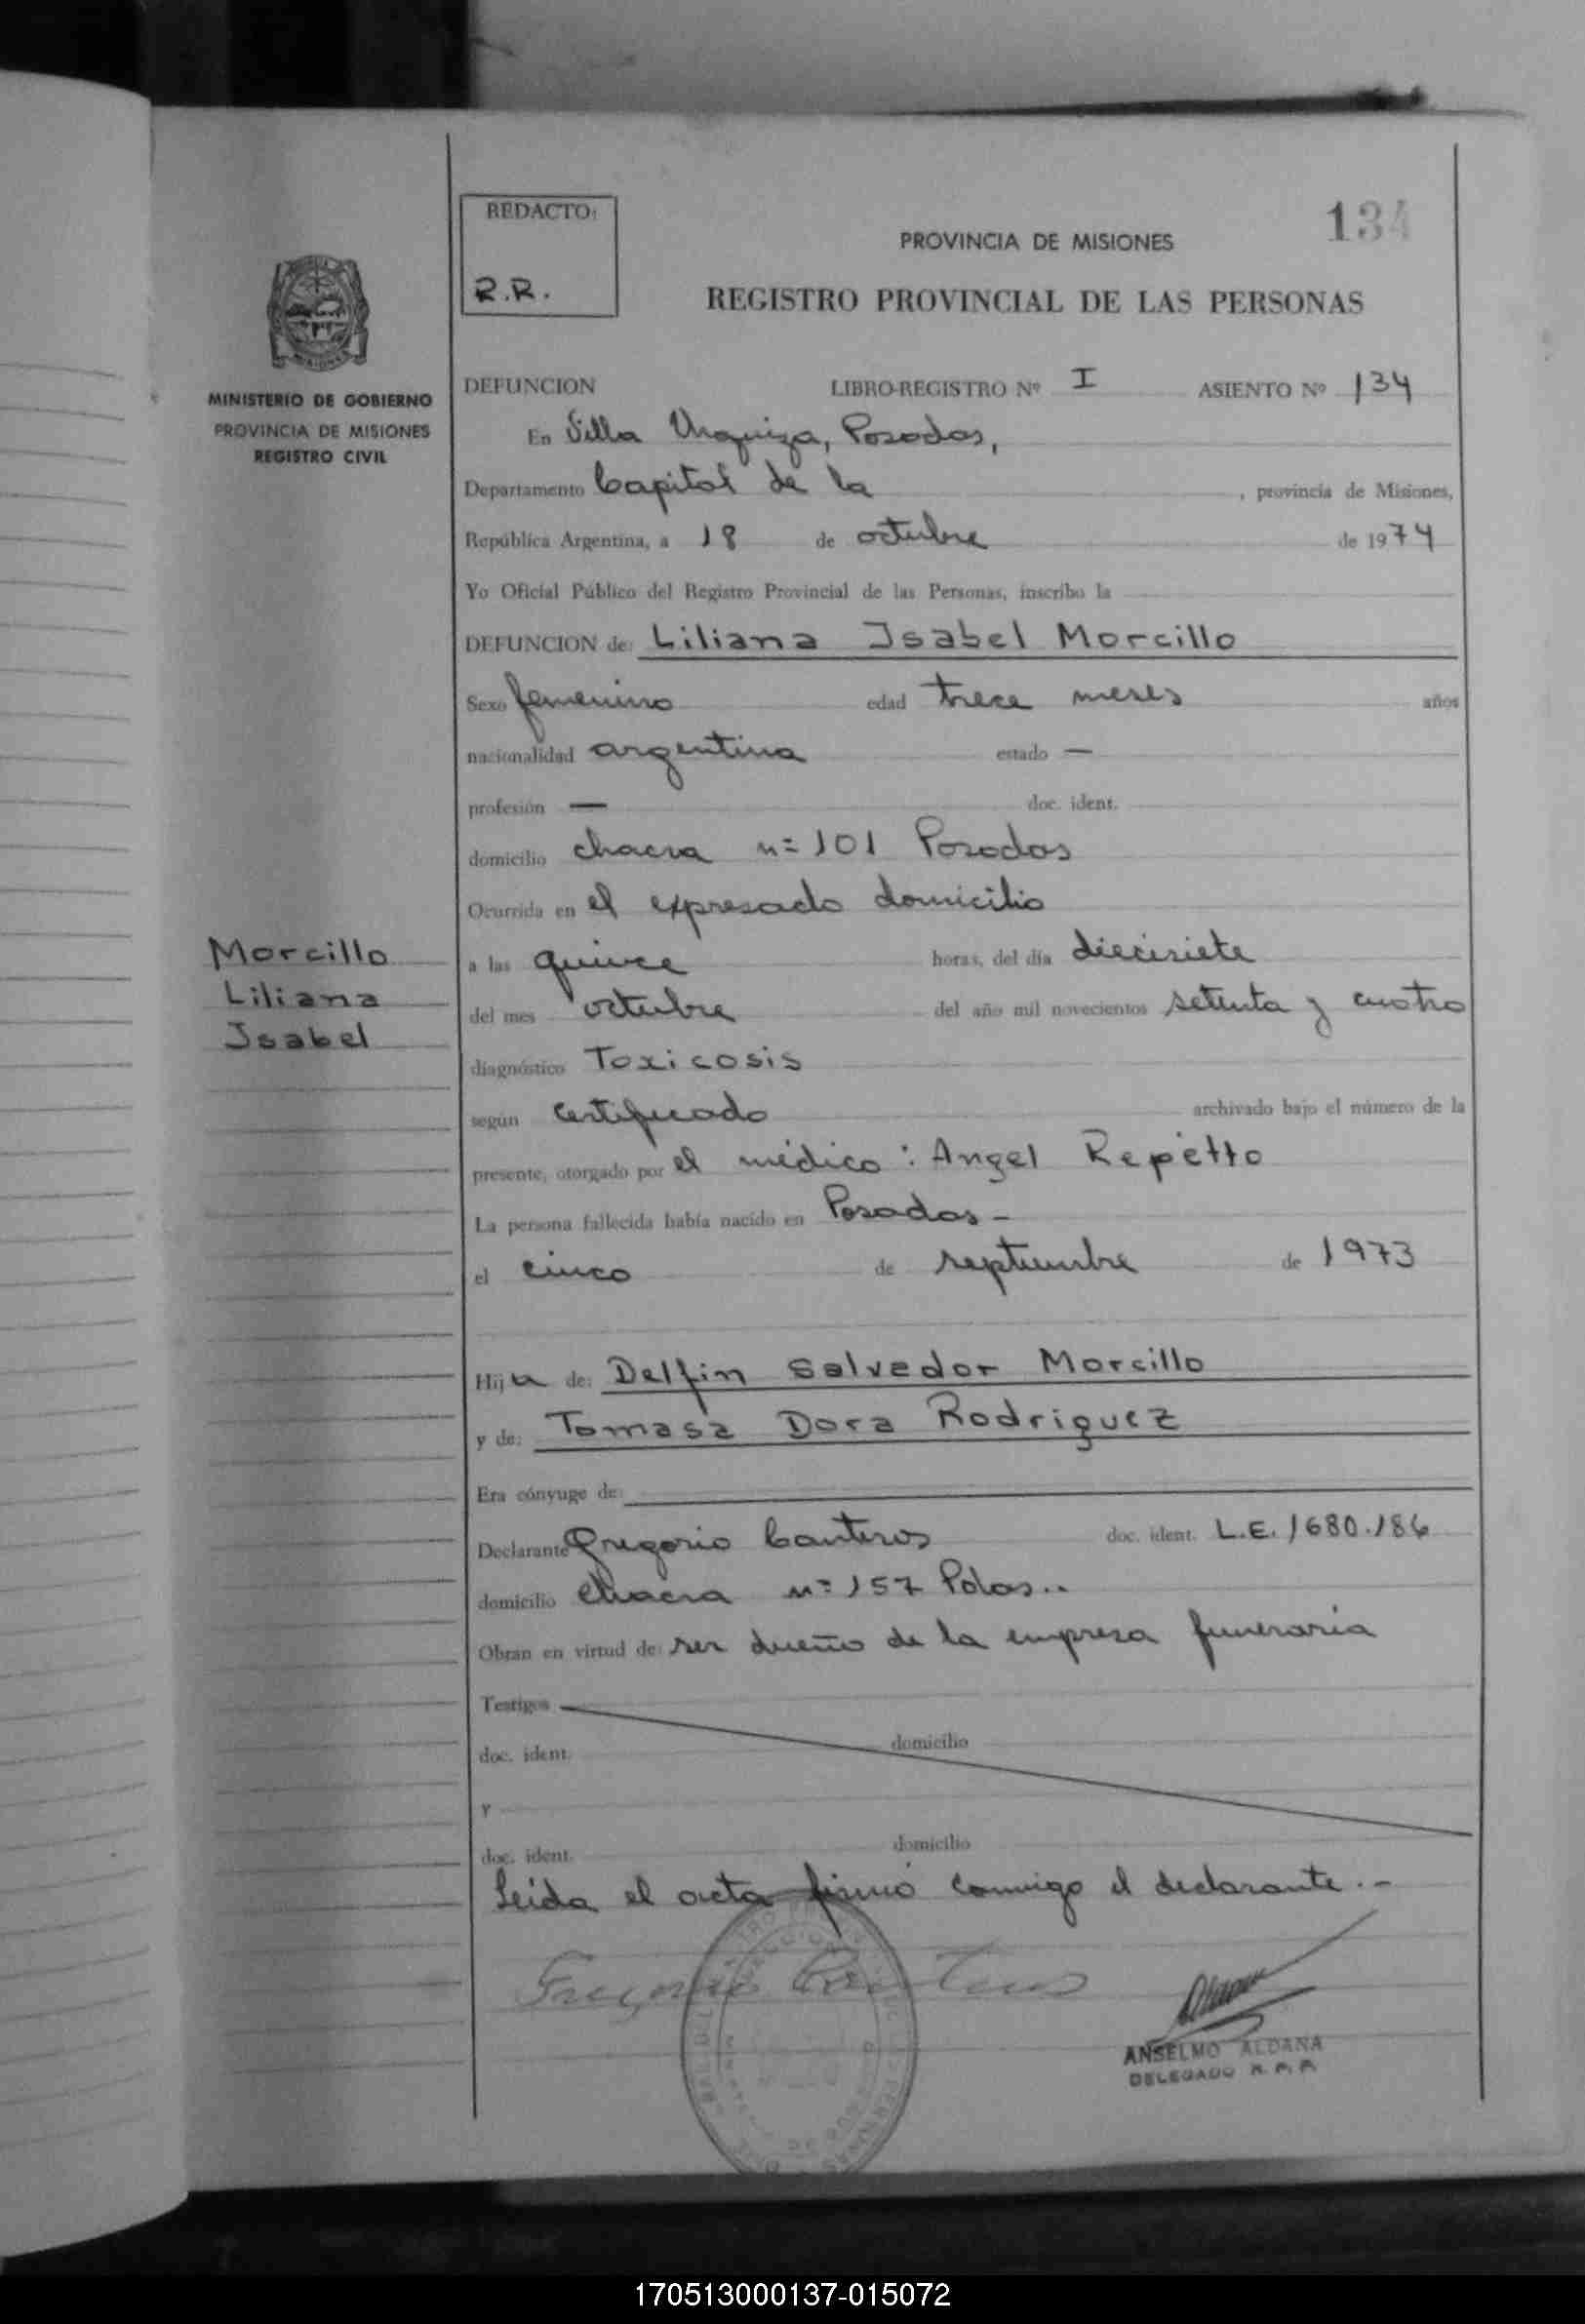 134
REDACTO:
R.R.
PROVINCIA DE MISIONES
REGISTRO PROVINCIAL DE LAS PERSONAS
MINISTERIO DE GOBIERNO
PROVINCIA DE MISIONES
REGISTRO CIVIL
DEFUNCION LIBRO-REGISTRO Nº I ASIENTO Nº 134
En Villa Urquiza, Posadas,
Departamento Capital de la , provincia de Misiones,
República Argentina, a 18 de octubre de 1974
Yo Oficial Público del Registro Provincial de las Personas, inscribo la
DEFUNCION de: Liliana Isabel Morcillo
Sexo femenino edad trece meses años
nacionalidad argentina estado —
profesión — doc. ident.
domicilio chacra nº 101 Posadas
Ocurrida en el expresado domicilio
Morcillo
Liliana
Isabel
a las quince horas, del día diecisiete
del mes octubre del año mil novecientos setenta y cuatro
diagnóstico Toxicosis
según certificado archivado bajo el número de la
presente, otorgado por el médico: Angel Repetto
La persona fallecida había nacido en Posadas -
el cinco de septiembre de 1973
Hija de: Delfin Salvador Morcillo
y de: Tomasa Dora Rodriguez
Era cónyuge de:
Declarante Gregorio Canteros doc. ident. L.E. 1680.186
domicilio chacra nº 157 Pdas..
Obran en virtud de: ser dueño de la empresa funeraria
Testigos
doc. ident. domicilio
Y
doc. ident. domicilio
Leida el acta firmó conmigo el declarante.-
Gregorio Canteros
ANSELMO ALDANA
DELEGADO R. P. P.
170513000137-015072